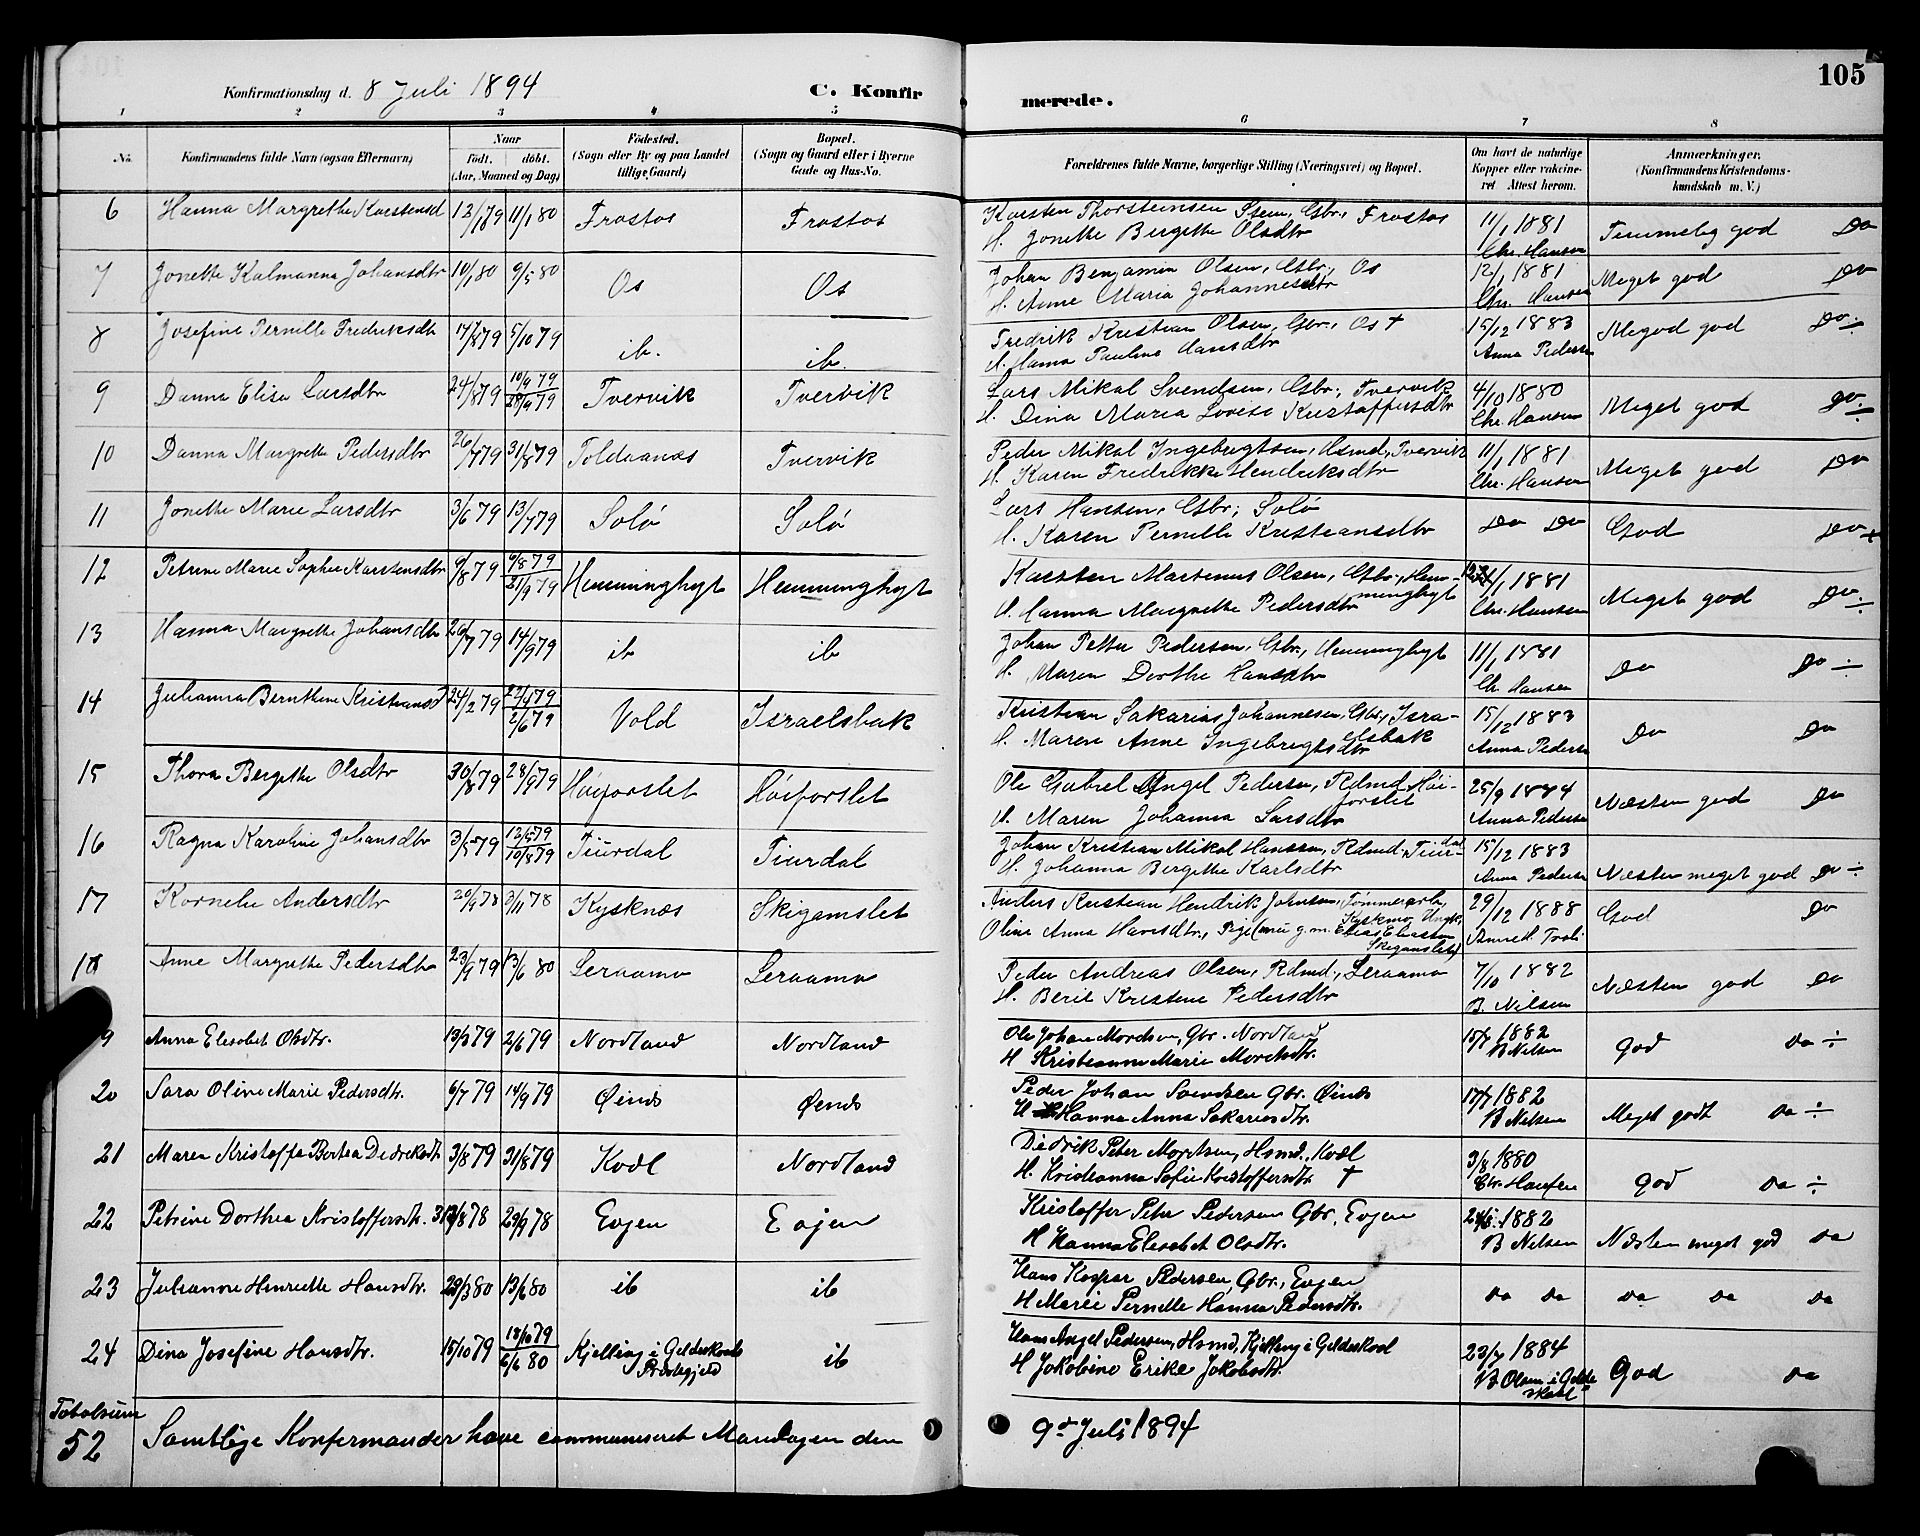 105
Konfirmationsdag d. 8 Juli 1894 C. Konfirmerede.
1 2 3 4 5 6 7 8
No. Konfirmandens fulde Navn (ogsaa Efternavn) Naar født. døbt. (Aar, Maaned og Dag) Fødested. (Sogn eller By og paa Landet tillige Gaard) Bopæl. (Sogn og Gaard eller i Byerne Gade og Hus-No. Forældrenes fulde Navne, borgerlige Stilling (Næringsvei) og Bopæl. Om havt de naturlige Kopper eller vakcineret Attest herom. Anmærkninger. (Konfirmandens Kristendomskundskab m. V.)
6 Hanna Margrethe Karstensd 12/1 79 11/1 80 Frostos Frostos Karsten Thorsteinsen Steen, Gbr., Frostos 11/1 1881 Temmelig god Do
H. Jonette Bergitte Olsdtr Chr. Hansen
7 Jonette Kalmanna Johansdtr 10/1 80 9/5 80 Os Os Johan Benjamin Olsen, Gbr., Os 12/1 1881 Meget god Do
H. Anne Maria Johannesdtr Chr. Hansen
8 Josefine Pernille Fredriksdtr 14/8 79 5/10 79 ib. ib. Fredrik Kristian Olsen, Gbr., Os + 15/12 1883 Megod god Do ÷
H. Hanna Pauline Hansdtr Anna Pedersen
9 Danna Elise Larsdtr 24/8 79 10/9 79 28/9 79 Tvervik Tvervik Lars Mikal Svendsen, Gbr., Tvervik 4/10 1880 Meget god Do ÷
H. Dina Maria Lovise Kristoffersdtr Chr. Hansen
10 Danna Margrethe Pedersdtr 26/7 79 31/8 79 Toldaanæs Tvervik Peder Mikal Ingebrigtsen, Hsmd, Tvervik 11/1 1881 Meget god Do
H. Karen Fredrikke Hendriksdtr Chr. Hansen
11 Jonette Marie Larsdtr 3/6 79 13/7 79 Solø Solø Lars Hansen, Gbr., Solø Do Do God Do +
H. Karen Pernille Kristiansdtr
12 Petrine Marie Sophie Karstensdtr 9/8 79 9/8 79 21/9 79 Hemminghyt Hemminghyt Karsten Martenus Olsen, Gbr., Hemminghyt 1881 Meget god Do ÷
H. Hanna Margrethe Pedersdtr Chr. Hansen
13 Hanna Margrethe Johansdtr 26/7 79 14/9 79 ib ib Johan Petter Pedersen, Gbr., Hemminghyt 11/1 1881 Do Do ÷
H. Maren Dorthe Hansdtr Ch. Hansen
14 Julianna Bernthine Kristiansd 24/2 79 22/4 79 2/6 79 Vold Israelsbak Kristian Sakarias Johannesen, Gbr., Israelsbak 15/12 1883 Do Do
H. Maren Anne Ingebrigtsdtr Anna Pedersen
15 Thora Bergitte Olsdtr 30/8 79 28/9 79 Høiforslet Høiforslet Ole Gabriel Angel Pedersen, Rdmd Høiforslet 25/9 1884 Næsten god Do
H. Maren Johanna Larsdtr Anna Pedersen
16 Ragna Karoline Johansdtr 3/5 79 12/5 79 10/8 79 Tiurdal Tiurdal Johan Kristian Mikal Hanssen, Rdmd., Tiurdal 15/12 1883 Næsten meget god Do ÷
H. Johanna Bergitte Karlsdtr Anna Pedersen
17 Kornelie Andersdtr 20/9 78 3/11 78 Kysknæs Skigamslet Anders Kristian Hendrik Johnsen, Tømmerarb., Kyskmo, Ungk., 29/12 1888 God Do
Oline Anna Hansdtr., Pige (nu g. m. Elias Eliassen Skigamslet)
18 Anne Margrethe Pedersdtr 23/9 79 13/6 80 Leraamo Leraamo Peder Andreas Olsen, Rdmd., Leraamo 7/10 1882 Næsten god Do
H. Berit Kristine Pedersdtr B. Nilsen
9 Anna Elesabet Olsdtr. 13/3 79 2/6 79 Nordland Nordland Ole Johan Mordsen, Gbr. Nordland 15/7 1882 God da ÷
H Kristeanne Marie Morchdtr. B Nilsen
20 Sara Oline Marie Pedersdtr. 6/7 79 14/9 79 Øinæs Øenæs Peder Johan Svendsen Gbr. Øinæs 17/7 1882 Meget godt da ÷
H Hanna Anna Sakariasdtr. B Nielsen
21 Maren Kristoffa Bertea Didreksdtr 3/8 79 31/8 79 Kodl Nordland Didrik Peter Moritsen, Hsmd., Kodl 3/8 1880 God da ÷
H. Kristeanna Sofie Kristoffersdtr. † Chr. Hansen
22 Petrine Dorthea Kristoffersdt. 31/8 78 29/9 78 Evjen Evjen Kristoffer Peter Pedersen Gbr., Evjen 1882 Næsten meget god da
H Hanna Elesabet Olsdtr. B Nelsen
23 Julianne Henriette Hansdtr. 29/3 80 13/6 80 ib ib Hans Kaspar Pedersen Gbr., Evjen da da da da da
H Marie Pernelle Hanna Pedersdtr.
24 Dina Josefine Hansdtr. 15/10 79 18/10 79 6/6 80 Kjelling i Gildeskaals Præstegjeld ib Hans Angel Pedersen, Hsmd, Kjelling i Geldeskaal 23/7 1884 God da
H Jakobine Erike Jakobsdtr. B Olsen i Geldeskaal
Totalsum
52 Samtlige Konfermander have communiseret Mandagen den 9de Juli 1894